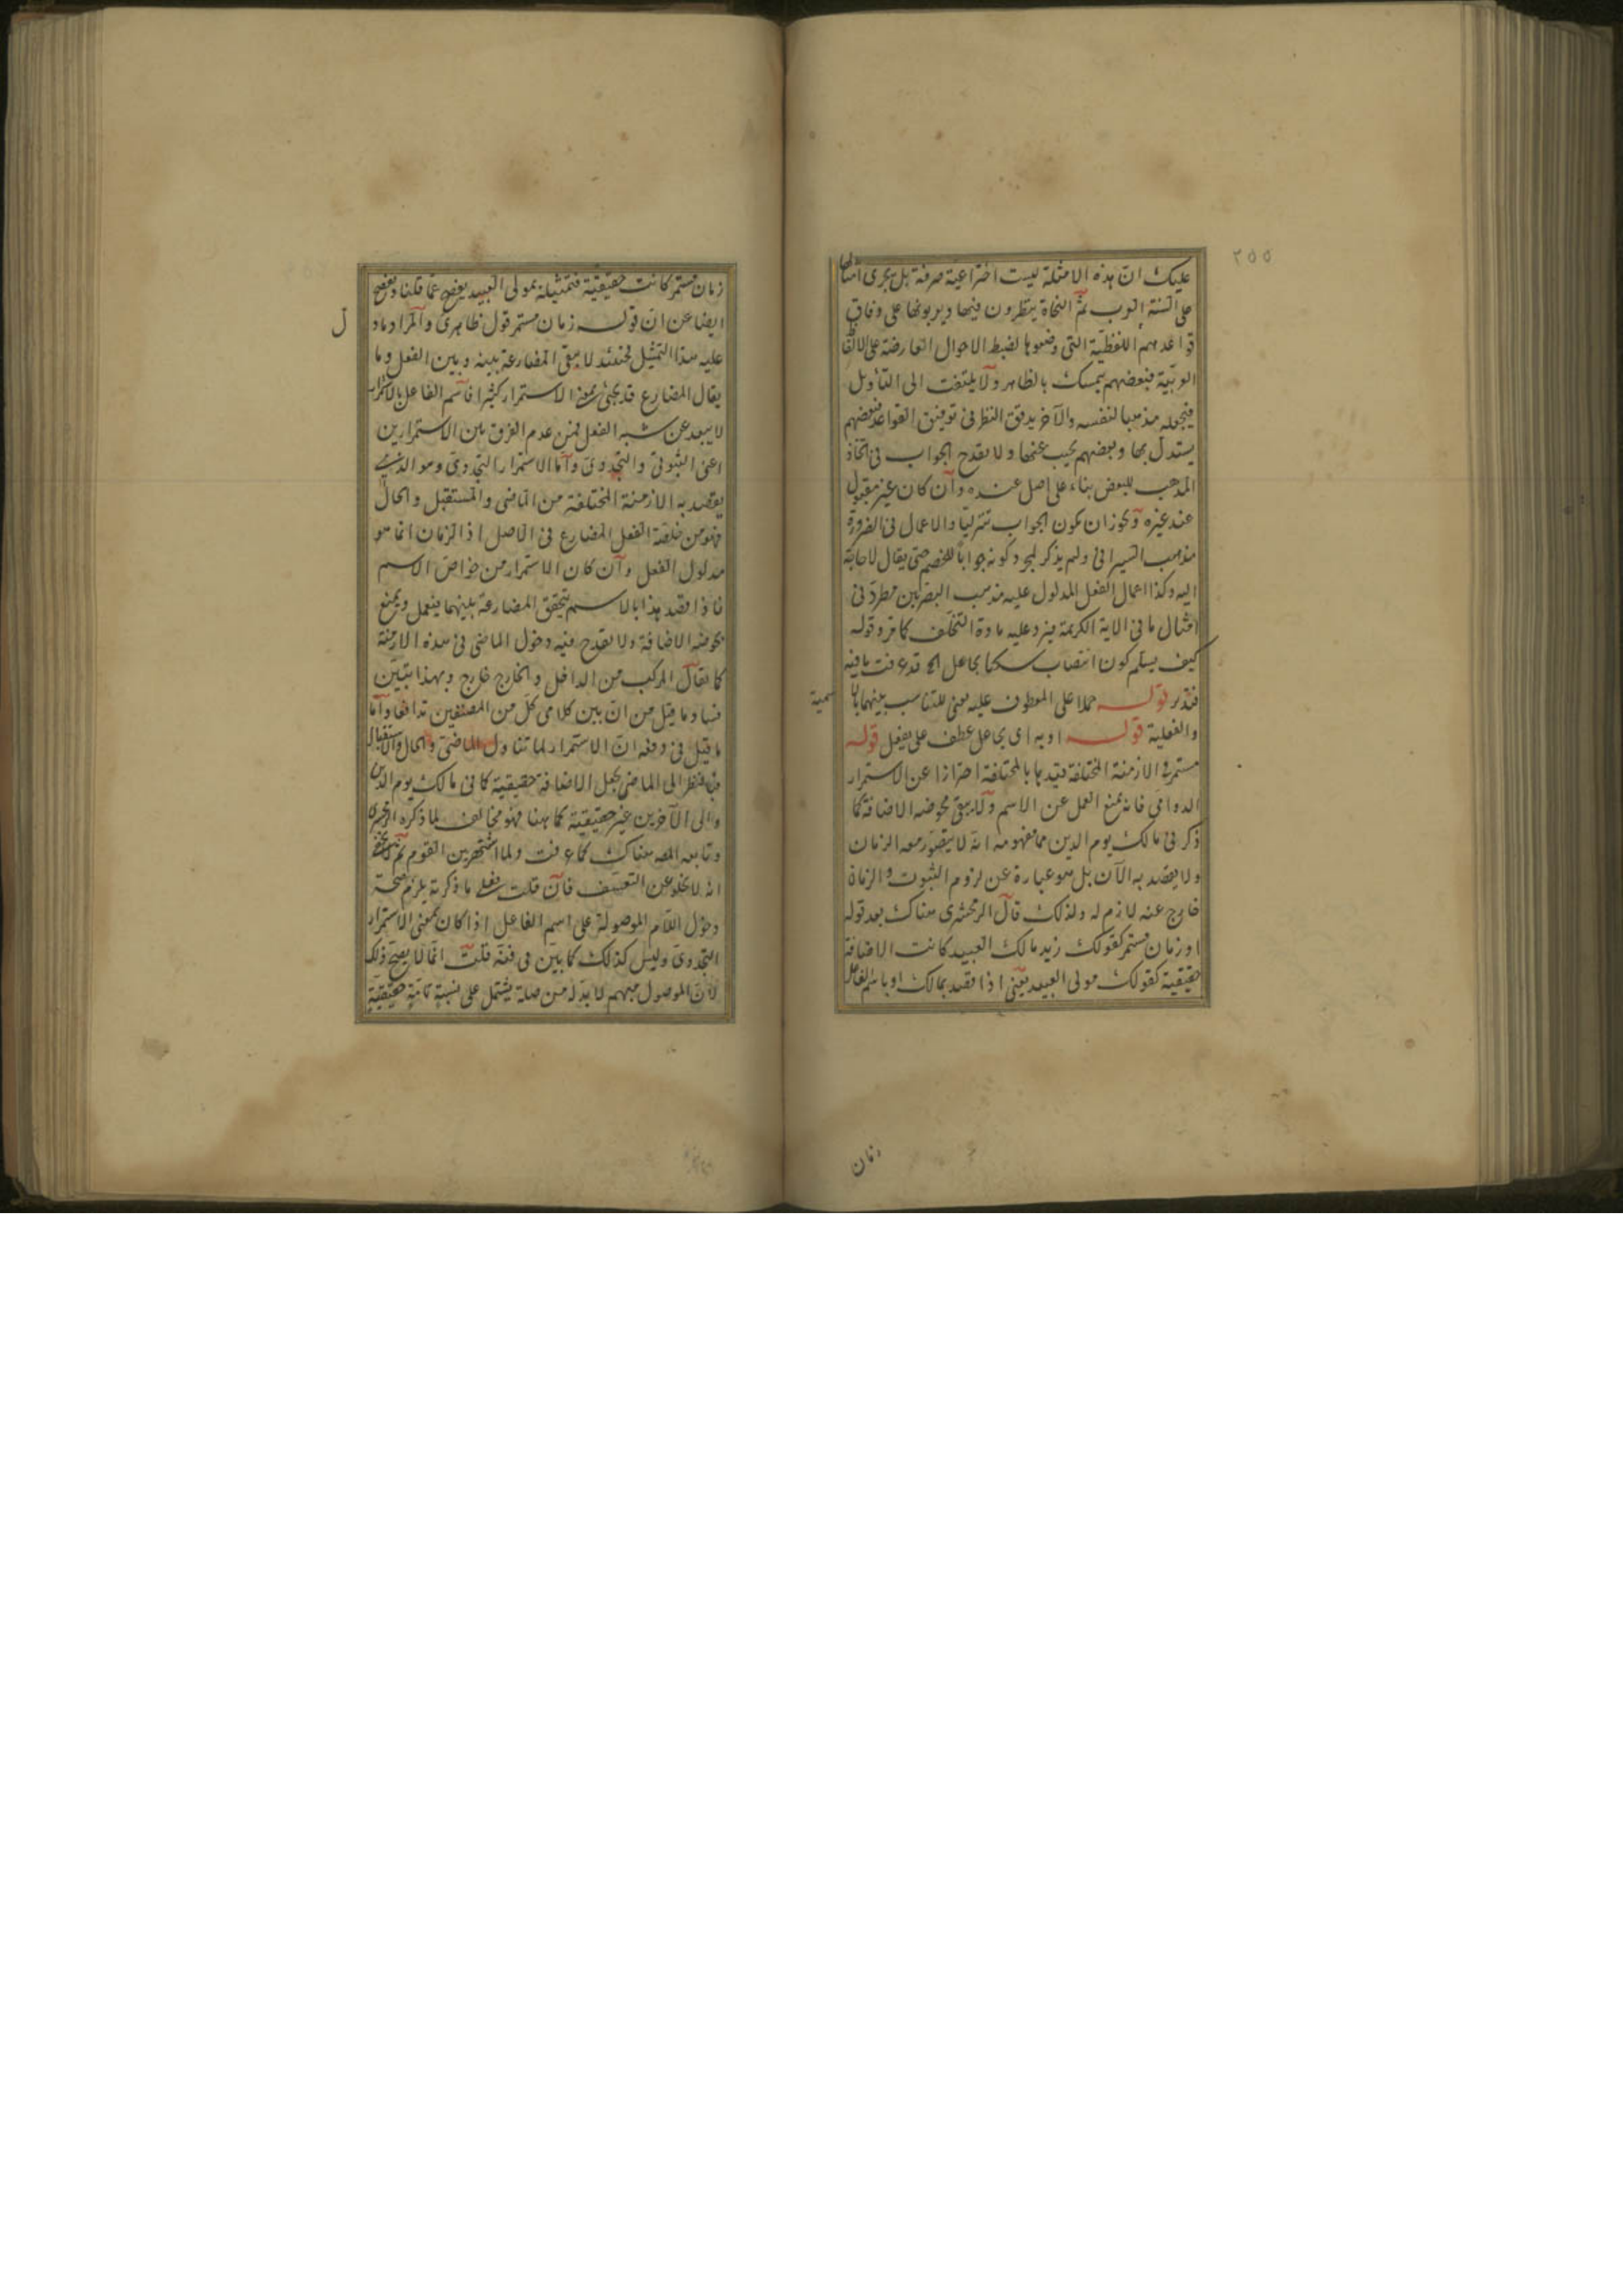 ٢٥٥
عليك ان هذه الامثلة ليست اختراعية صرفة بل يجرى امثالها
على السنة العرب ثم النحاة ينظرون فيها ويربونها على وفاق
قواعدهم اللفظية التى وضعوها لضبط الاحوال العارضة على الالفاظ
العربية فبعضهم يتمسك بالظاهر ولا يلتفت الى التأويل
فيجعله مذهبا لنفسه والآخر يدقق النظر فى توفيق القواعد فبعضهم
يستدل بها وبعضهم يجيب عنها ولا يقدح الجواب فى اتخاذ
المذهب للبعض بناء على اصل عنده وان كان غير مقبول
عند غيره ويجوز ان يكون الجواب تنزليا والاعمال فى الضرورة
مذهب السيرافى ولم يذكر لمجرد كونه جوابا للخصم حتى يقال لا حاجة
اليه وكذا اعمال الفعل المدلول عليه مذهب البصريين مطرد فى
امثال ما فى الاية الكريمة فيرد عليه مادة التخلف كما مر وقوله
كيف يسلم كون انتصاب سكنا بجاعل الخ قد عرفت ما فيه
فتدبر قوله حملا على المعطوف عليه معنى للتناسب بينهما بالا
سمية
والفعلية قوله او به اى بجاعل عطف على بفعل قوله
مستمر فى الازمنة المختلفة قيدها بالمختلفة احترازا عن الاستمرار
الدوامى فانه يمنع العمل عن الاسم ولا يبقى محوضه الاضافة كما
ذكر فى مالك يوم الدين مما مفهومه انه لا يتصور معه الزمان
ولا يقصد به الآن بل هو عبارة عن لزوم الثبوت والزمان
خارج عنه لازم له ولذلك قال الزمخشرى هناك بعد قوله
او زمان مستمر كقولك زيد مالك العبيد كانت الاضافة
حقيقية كقولك مولى العبيد يعنى اذا قصد بمالك او باسم الفاعل
زمان
زمان مستمر كانت حقيقية فتمثيله بمولى العبيد يفصح عما قلنا ويفصح
ايضا عن ان قوله زمان مستمر قول ظاهرى والمراد ما د
ل
عليه هذا التمثيل فحينئذ لا يبقى المضارعة بينه وبين الفعل وما
يقال المضارع قد يجئ بمعنى الاستمرار كثيرا فاسم الفاعل بالاستمرار
لا يبعد عن شبه الفعل فمن عدم الفرق بين الاستمرارين
اعنى الثبوتى والتجددى واما الاستمرار التجددى وهو الذى
يقصد به الازمنة المختلفة من الماضى والمستقبل والحال
فهو من خلقة الفعل المضارع فى الاصل اذ الزمان انما هو
مدلول الفعل وان كان الاستمرار من خواص الاسم
فاذا قصد هذا بالاسم تتحقق المضارعة بينهما فيعمل ويمنع
محوضه الاضافة ولا يقدح فيه دخول الماضى فى هذه الازمنة
كما يقال المركب من الداخل والخارج خارج وبهذا يتبين
فساد ما قيل من ان بين كلامى كل من المصنفين تدافعا واما
ما قيل فى دفعه ان الاستمرار لما تناول الماضى والحال والاستقبال
فبالنظر الى الماضى يجعل الاضافة حقيقية كما فى مالك يوم الدين
والى الآخرين غير حقيقية كما ههنا فهو مخالف لما ذكره الزمخشرى
وتابعه المص هناك كما عرفت ولما اشتهر بين القوم ثم لا يخفى
انه لا يخلو عن التعسف فان قلت فعلى ما ذكرته يلزم صحة
دخول اللام الموصولة على اسم الفاعل اذا كان بمعنى الاستمرار
التجددى وليس كذلك كما بين فى فنه قلت انما لا يصح ذلك
لان الموصول مبهم لا بد له من صلة يشتمل على نسبة تامة حقيقية